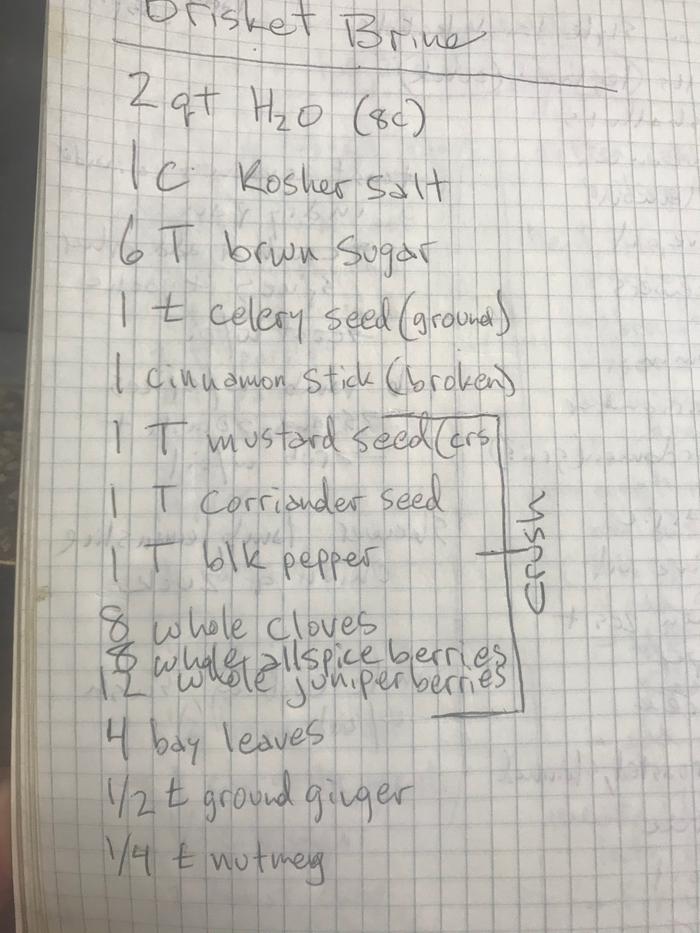 Brisket Brine
2 qt H₂O (8c)
1 c. Kosher salt
6 T brwn sugar
1 t celery seed (ground)
1 cinnamon stick (broken)
1 T mustard seed (crs
1 T corriander seed
1 T blk pepper
crush
8 whole cloves
8 whole allspice berries
12 whole juniper berries
4 bay leaves
1/2 t ground ginger
1/4 t nutmeg